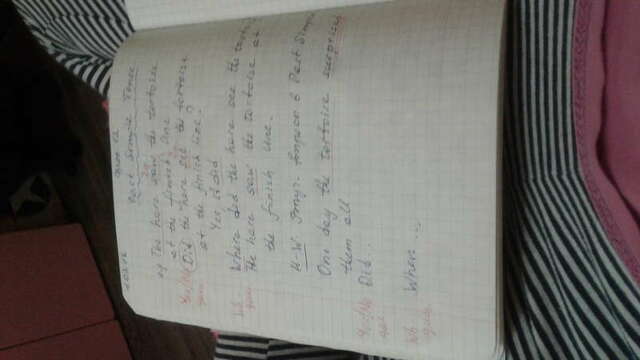 Past Simple Tense
eg The hare saw the tortoise
at the finish line
Yes/No Did the hare see the tortoise
ques at the finish line?
Yes it did
Wh- Where did the hare see the
ques The hare saw the tortoise at
the finish line.
H-W Past Simple
One day the tortoise surprised
them all
Yes/No Did...
que
Wh When ...
ques